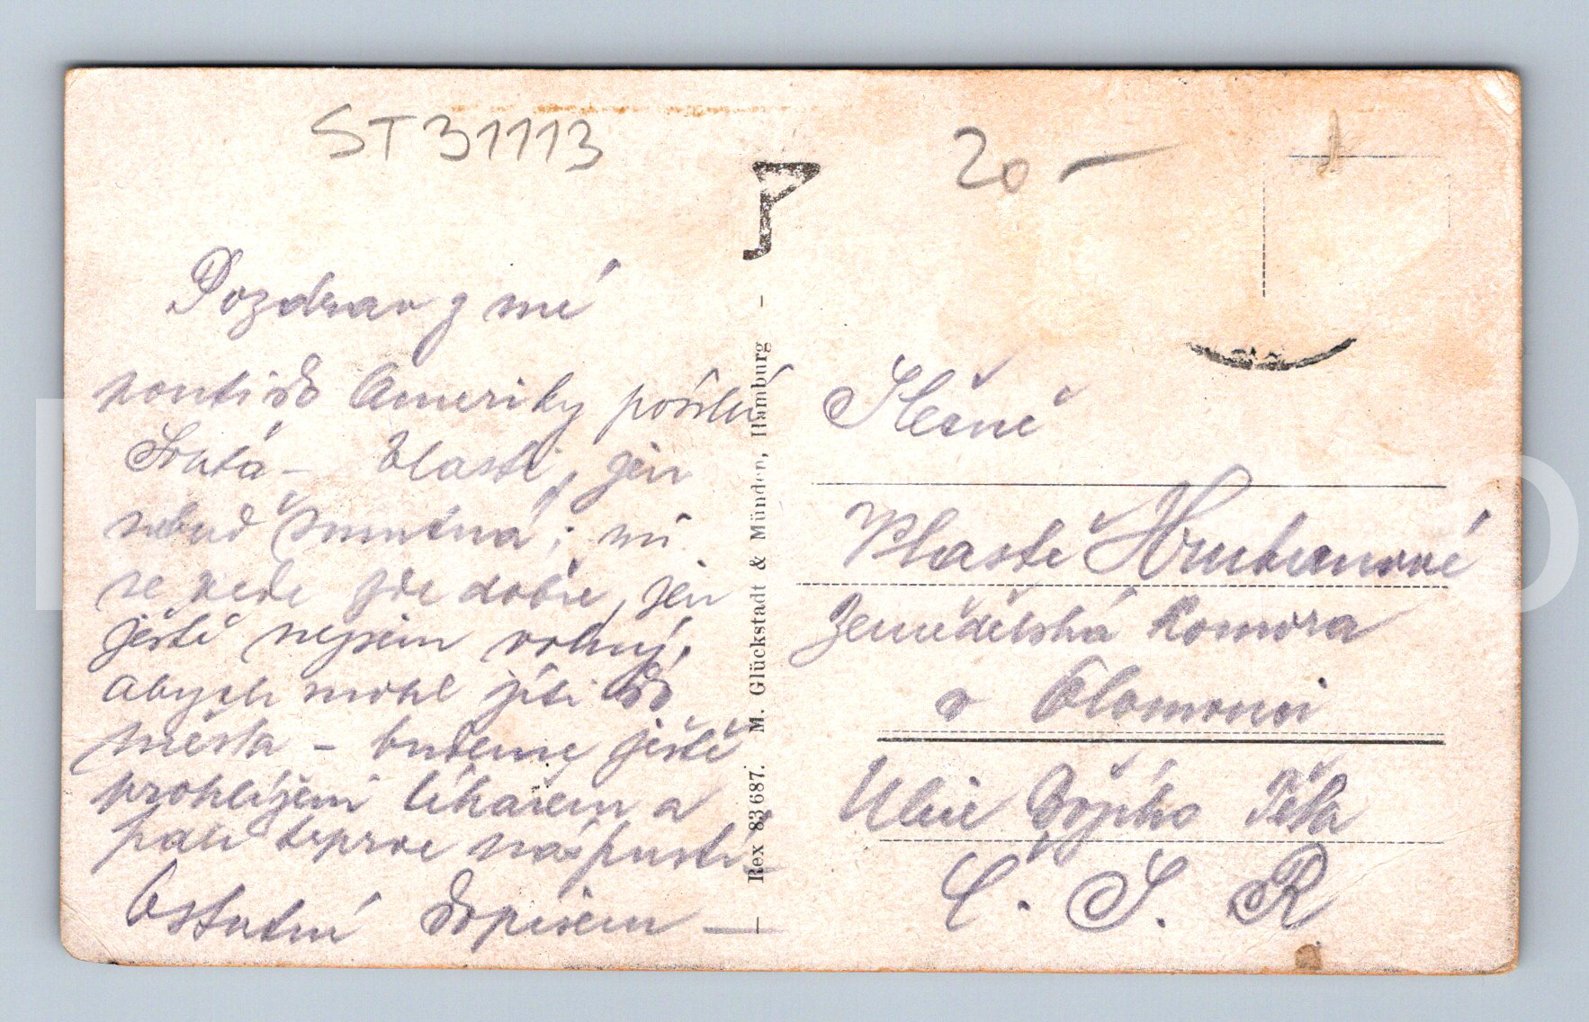 ST31113
20 -
Pozdrav z mé
pouti do Ameriky posílá
Frutá - Vlasti, jen
nebuď smutná; mi
se vede zde dobře, jen
ještě nejsem volný,
abych mohl jíti do
města - budeme ještě
prohlíženi lékařem a
pak teprve nás pustí.
Ostatní dopisem -
Rex 83687. M. Glückstadt & Münden, Hamburg
Slečně
Vlastě Hrubanové
Zemědělská komora
v Olomouci
Ulice Božího Těla
Č. S. R